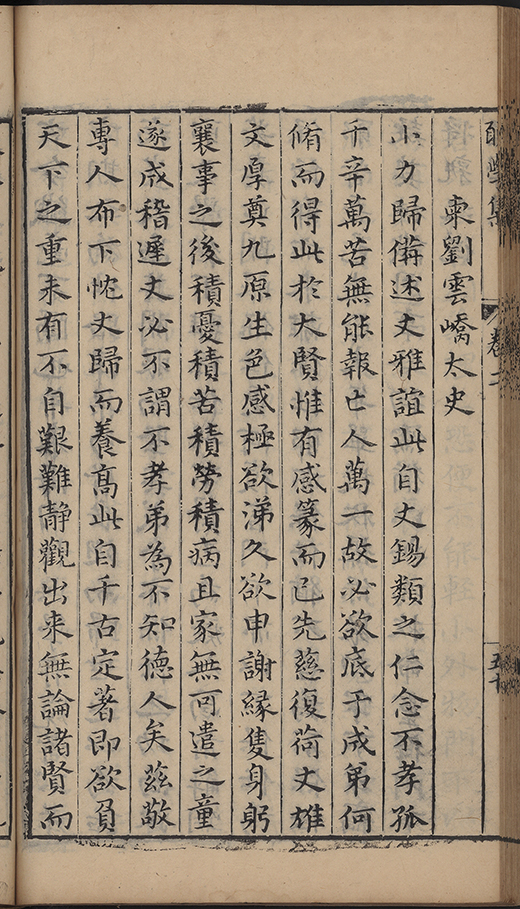 集
卷二
五十
柬劉雲嶠太史
小力歸備述丈雅誼此自丈錫類之仁念不孝孤
千辛萬苦無能報亡人萬一故必欲底于成弟何
脩而得此於大賢惟有感篆而已先慈復荷丈雄
文厚奠九原生色感極欲涕久欲申謝緣隻身躬
襄事之後積憂積苦積勞積病且家無可遣之童
遂成稽遲丈必不謂不孝弟為不知德人矣茲敬
專人布下忱丈歸而養高此自千古定著即欲負
天下之重未有不自艱難静觀出来無論諸賢而